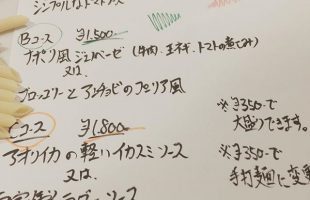 シンプルなトマトソース
Bコース ¥1,500
ナポリ風 ジェノベーゼ (牛肉、玉ネギ、トマトの煮こみ)
又は、
ブロッコリーと アンチョビの プーリア風
Cコース ¥1,800
アオリイカの 軽い イカスミソース
又は、
※¥350-で
大盛りできます。
※¥350-で
手打麺に変更